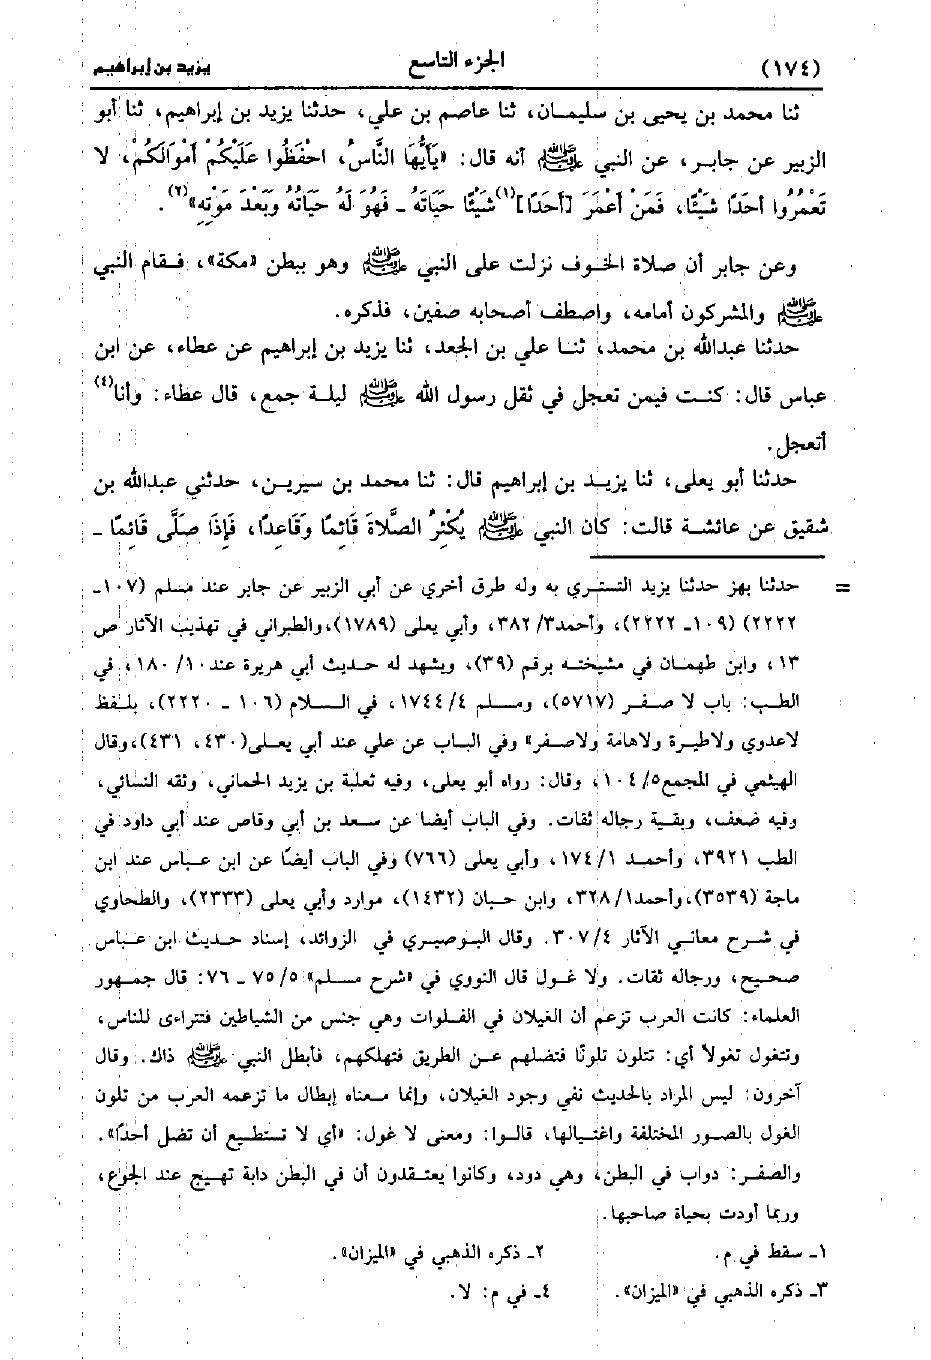 (١٧٤) الجزء التاسع يزيد بن إبراهيم
ثنا محمد بن يحيى بن سليمان، ثنا عاصم بن علي، حدثنا يزيد بن إبراهيم، ثنا أبو
الزبير عن جابر، عن النبي ﷺ أنه قال: «يَأَيُّهَا النَّاسُ، احْفَظُوا عَلَيْكُمْ أَمْوَالَكُمْ، لا
تَعْمُرُوا أحَدًا شَيْئًا، فَمَنْ أَعْمَرَ [أَحَدًا](١) شَيْئًا حَيَاتَهُ ـ فَهُوَ لَهُ حَيَاتَهُ وَبَعْدَ مَوْتِهِ»(٢).
وعن جابر أن صلاة الخوف نزلت على النبي ﷺ وهو ببطن «مكة»، فقام النبي
ﷺ والمشركون أمامه، واصطف أصحابه صفين، فذكره.
حدثنا عبدالله بن محمد، ثنا علي بن الجعد، ثنا يزيد بن إبراهيم عن عطاء، عن ابن
عباس قال: كنت فيمن تعجل في ثقل رسول الله ﷺ ليلة جمع، قال عطاء: وأنا(٤)
أتعجل.
حدثنا أبو يعلى، ثنا يزيد بن إبراهيم قال: ثنا محمد بن سيرين، حدثني عبدالله بن
شقيق عن عائشة قالت: كان النبي ﷺ يُكْثِرُ الصَّلاَةَ قَائِمًا وَقَاعِدًا، فَإِذَا صَلَّى قَائِمًا ـ
= حدثنا بهز حدثنا يزيد التستري به وله طرق أخري عن أبي الزبير عن جابر عند مسلم (١٠٧ـ
٢٢٢٢) (١٠٩ـ ٢٢٢٢)، وأحمد٣/ ٣٨٢، وأبي يعلى (١٧٨٩)، والطبراني في تهذيب الآثار ص
١٣، وابن طهمان في مشيخته برقم (٣٩)، ويشهد له حديث أبي هريرة عند١٠/ ١٨٠، في
الطب: باب لا صفر (٥٧١٧)، ومسلم ٤/ ١٧٤٤، في السلام (١٠٦ ـ ٢٢٢٠)، بلفظ
لاعدوي ولاطيرة ولاهامة ولاصفر» وفي الباب عن علي عند أبي يعلى(٤٣٠، ٤٣١)، وقال
الهيثمي في المجمع٥/ ١٠٤، وقال: رواه أبو يعلى، وفيه ثعلبة بن يزيد الحماني، وثقه النسائي،
وفيه ضعف، وبقية رجاله ثقات. وفي الباب أيضا عن سعد بن أبي وقاص عند أبي داود في
الطب ٣٩٢١، وأحمد ١/ ١٧٤، وأبي يعلى (٧٦٦) وفي الباب أيضًا عن ابن عباس عند ابن
ماجة (٣٥٣٩)، وأحمد١/ ٣٢٨، وابن حبان (١٤٣٢)، موارد وأبي يعلى (٢٣٣٣)، والطحاوي
في شرح معاني الآثار ٤/ ٣٠٧. وقال البوصيري في الزوائد، إسناد حديث ابن عباس
صحيح، ورجاله ثقات. ولا غول قال النووي في «شرح مسلم» ٥/ ٧٥ ـ ٧٦: قال جمهور
العلماء: كانت العرب تزعم أن الغيلان في الفلوات وهي جنس من الشياطين فتتراءى للناس،
وتتغول تغولاً أي: تتلون تلونًا فتضلهم عن الطريق فتهلكهم، فأبطل النبي ﷺ ذاك. وقال
آخرون: ليس المراد بالحديث نفي وجود الغيلان، وإنما معناه إبطال ما تزعمه العرب من تلون
الغول بالصور المختلفة واغتيالها، قالوا: ومعنى لا غول: «أي لا تستطيع أن تضل أحدًا».
والصفر: دواب في البطن، وهي دود، وكانوا يعتقدون أن في البطن دابة تهيج عند الجوع،
وربما أودت بحياة صاحبها.
١ـ سقط في م. ٢ـ ذكره الذهبي في «الميزان».
٣ـ ذكره الذهبي في «الميزان». ٤ـ في م: لا.